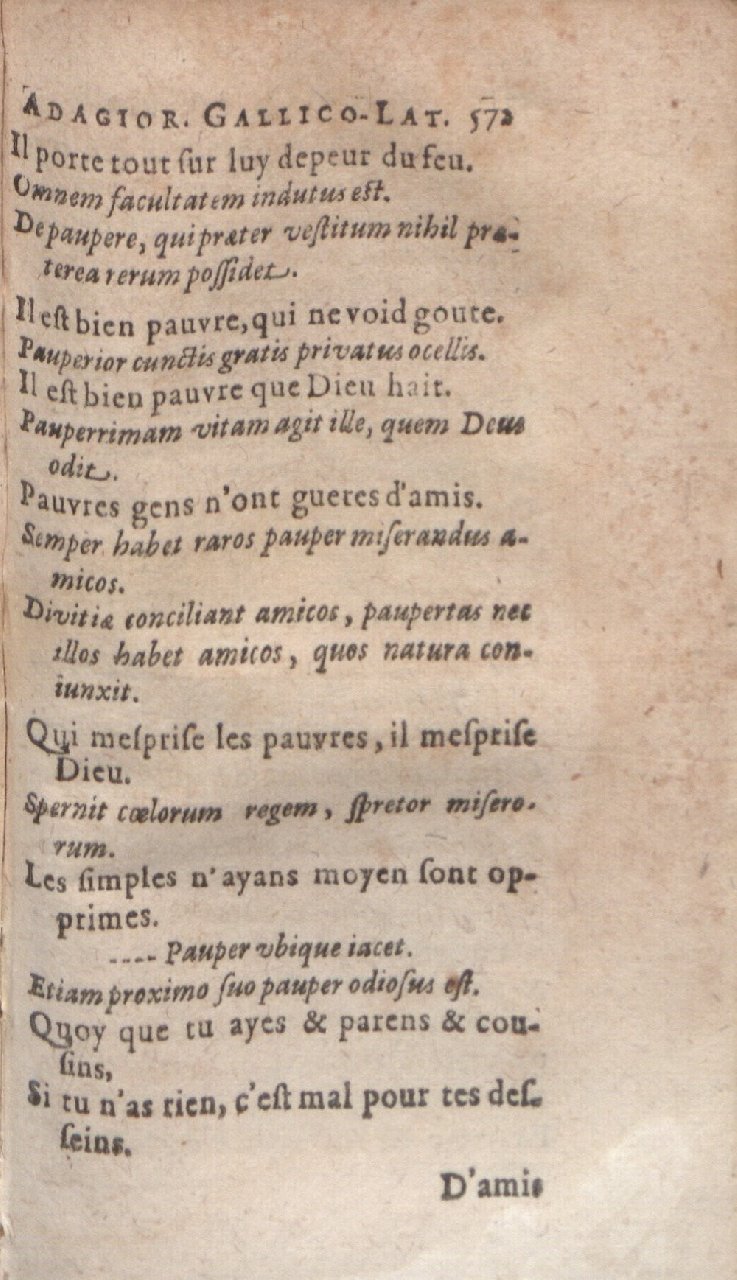 ADAGIOR. GALLICO-LAT. 572
Il porte tout ſur luy de peur du feu.
Omnem facultatem indutus eſt.
De paupere, qui præter veſtitum nihil præ-
terea rerum poſſidet.
Il eſt bien pauvre, qui ne void goute.
Pauperior cunctis gratis privatus ocellis.
Il eſt bien pauvre que Dieu hait.
Pauperrimam vitam agit ille, quem Deus
odit.
Pauvres gens n'ont gueres d'amis.
Semper habet raros pauper miſerandus a-
micos.
Divitiæ conciliant amicos, paupertas nec
illos habet amicos, quos natura con-
iunxit.
Qui meſpriſe les pauvres, il meſpriſe
Dieu.
Spernit cœlorum regem, ſpretor miſero-
rum.
Les ſimples n'ayans moyen ſont op-
primes.
---- Pauper vbique iacet.
Etiam proximo ſuo pauper odioſus eſt.
Quoy que tu ayes & parens & cou-
ſins,
Si tu n'as rien, c'eſt mal pour tes deſ-
ſeins.
D'amis